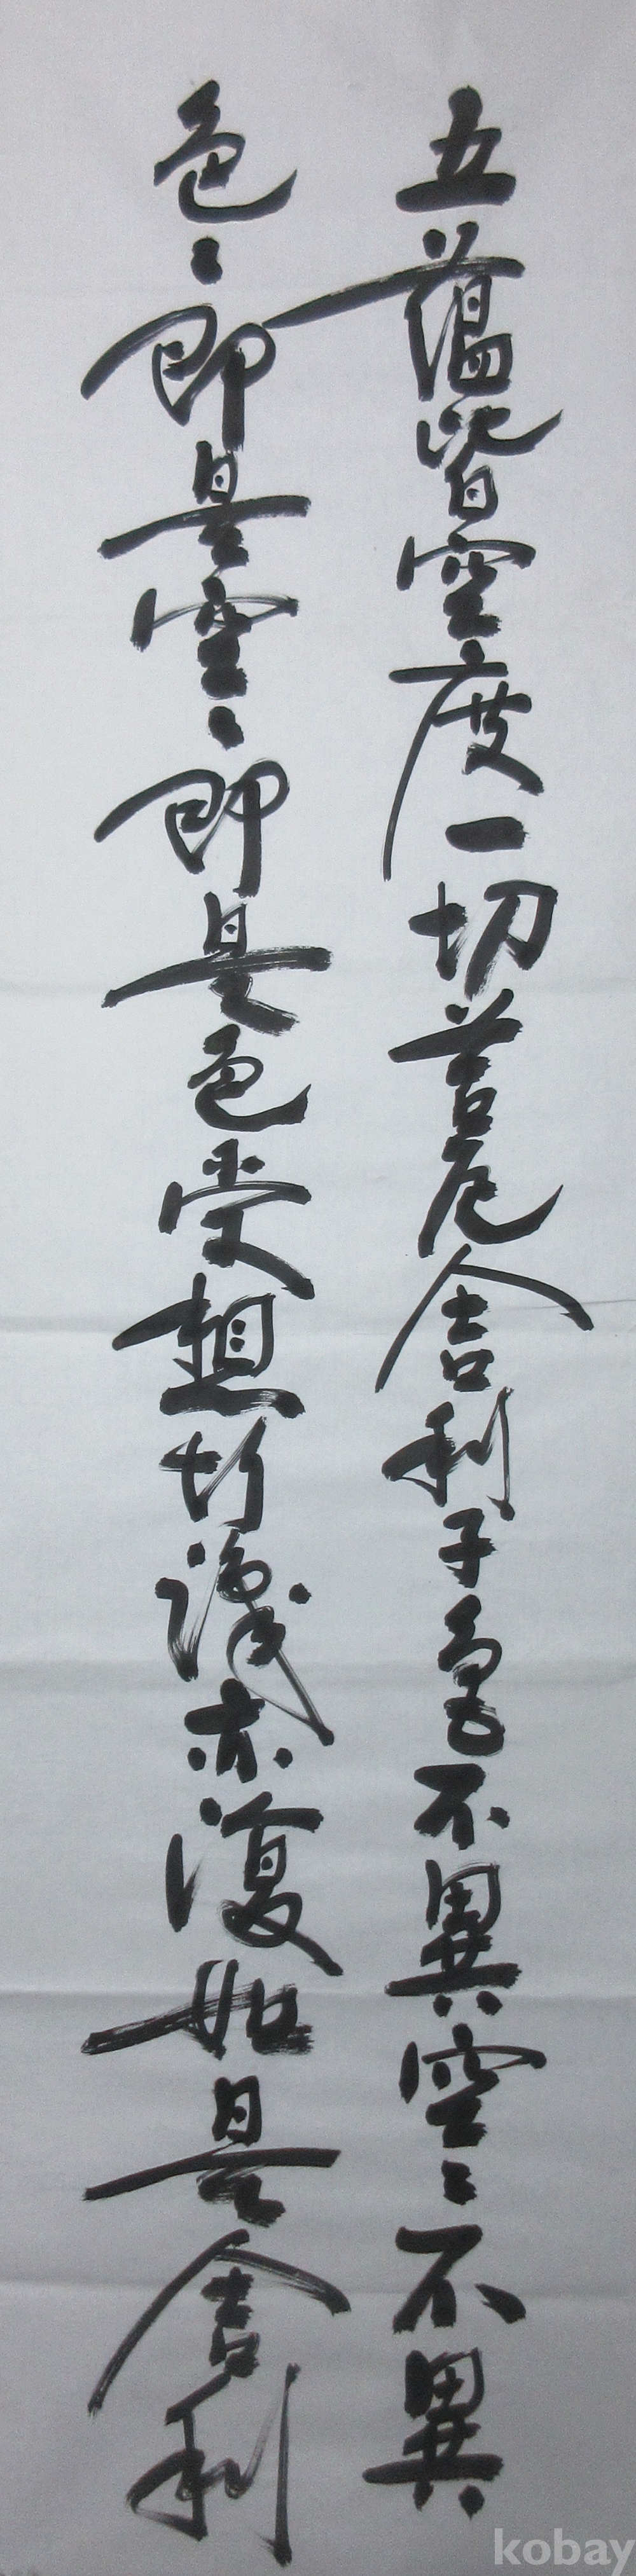 五蘊皆空度一切苦厄舍利子色不異空々不異
色々即是空々即是色受想行識亦復如是舍利
kobay